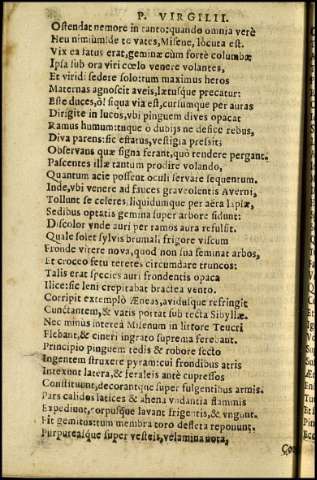 P. VIRGILII.
Ostendat nemore in tanto: quando omnia verè
Heu nimiùm de te vates, Misene, locuta est.
Vix ea fatus erat, geminæ cùm fortè columbæ
Ipsa sub ora viri cœlo venere volantes,
Et viridi sedere solo: tum maximus heros
Maternas agnoscit aveis, lætusque precatur:
Este duces, ô! siqua via est, cursumque per auras
Dirigite in lucos, vbi pinguem dives opacat
Ramus humum: tuque ô dubijs ne defice rebus,
Diva parens: sic effatus, vestigia pressit:
Observans quæ signa ferant, quò tendere pergant.
Pascentes illæ tantum prodire volando,
Quantum acie possent oculi servare sequentum.
Inde, vbi venere ad fauces graveolentis Averni,
Tollunt se celeres, liquidumque per aëra lapsæ,
Sedibus optatis gemina super arbore sidunt:
Discolor vnde auri per ramos aura refulsit.
Quale solet sylvis brumali frigore viscum
Fronde virere nova, quod non sua seminat arbos,
Et croceo fetu teretes circumdare truncos:
Talis erat species auri frondentis opaca
Ilice: sic leni crepitabat bractea vento.
Corripit extemplò Æneas, avidusque refringit
Cunctantem, & vatis portat sub tecta Sibyllæ.
Nec minus intereà Misenum in littore Teucri
Flebant, & cineri ingrato suprema ferebant.
Principio pinguem tedis & robore secto
Ingentem struxere pyram: cui frondibus atris
Intexunt latera, & feraleis antè cupressos
Constituunt, decorantque super fulgentibus armis.
Pars calidos latices & ahena vndantia flammis
Expediunt, corpusque lavant frigentis, & vngunt.
Fit gemitus: tum membra toro defleta reponunt.
Purpureasque super vesteis, velamina nota,